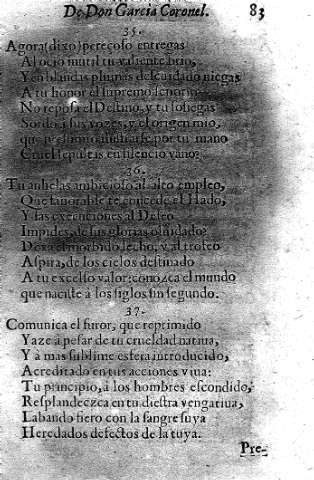 De Don Garcia Coronel. 83
35.
Agora (dixo) pereçoso entregas
Al ocio inutil tu valiente brio,
Y en blandas plumas descuidado niegas
A tu honor el supremo señorio
No reposa el Destino, y tu sosiegas
Sordo a sus vozes, y el origen mio,
que presumo ilustrarse por tu mano
Cruel sepultas en silencio vano.
36.
Tu anhelas ambicioso al empleo,
Que fauorable te concede el Hado,
Y las execuciones al Deseo
Impides, de tus glorias oluidado?
Dexa el morbido lecho, y al trofeo
Aspira, de los cielos destinado
A tu excelso valor; conozca el mundo
que naciste a los siglos sin segundo.
37.
Comunica el furor, que reprimido
Yaze a pesar de tu crueldad natiua,
Y à mas sublime esfera introducido,
Acreditado en tus acciones viua:
Tu principio, a los hombres escondido,
Resplandezca en tu diestra vengatiua,
Labando fiero con la sangre suya
Heredados defectos de la tuya.
Pre-